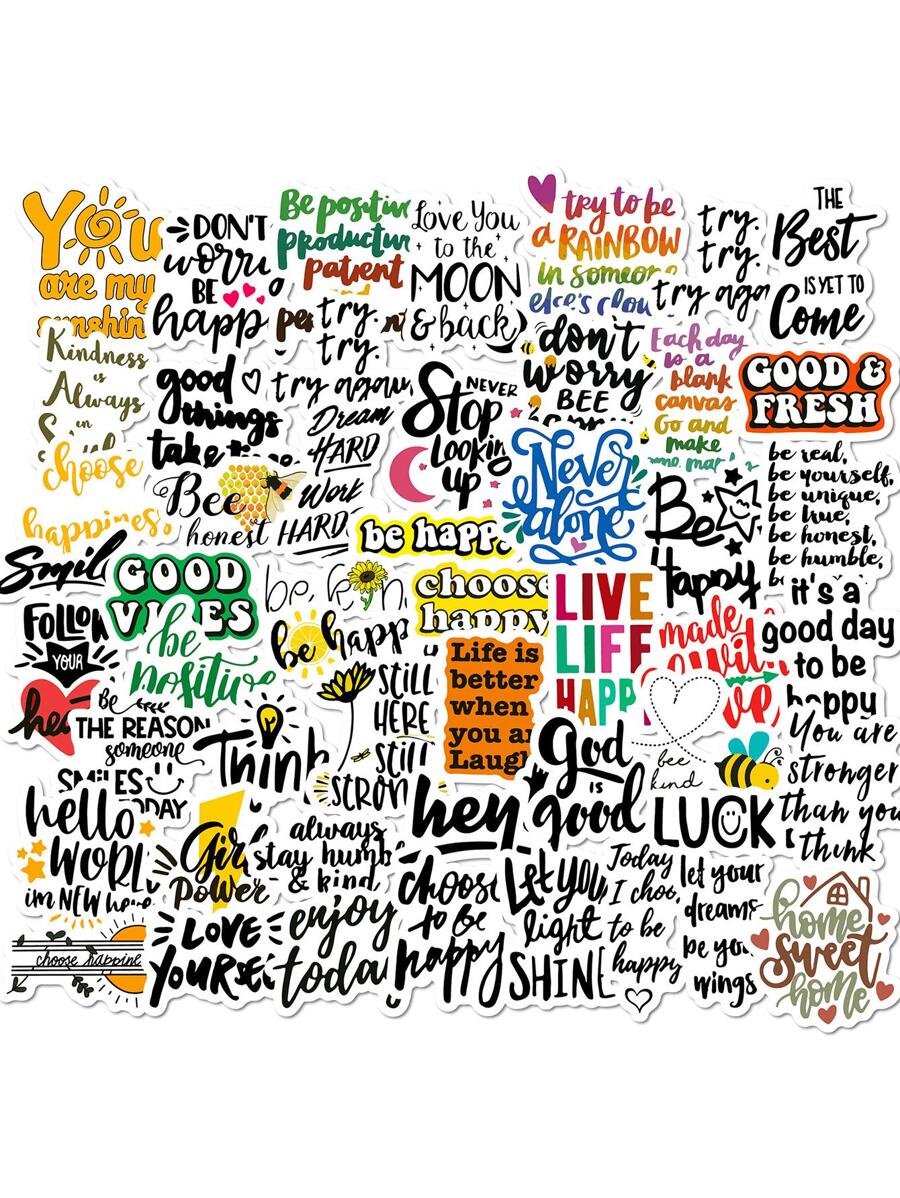 You
are my
DON'T
BE
Be positiv
productiv
patient
Love You
to the
MOON
& back
try to be
a RAINBOW
in someon
else's clou
try.
try.
try aga
THE
Best
IS YET TO
Come
Kindness
is
Always
in
good
things
take
try.
try.
try again
Dream
HARD
Work
HARD
NEVER
Stop
Looking
up
don't
worry
BEE
Each day
is a
blank
canvas
Go and
make
GOOD &
FRESH
choose
happines
Bee
honest
be happ
Never
alone
Be
Happy
be real,
be yourself,
be unique,
be true,
be honest,
be humble,
Smil
GOOD
VIBES
be
positive
be happ
choose
happy
LIVE
LIFE
HAPP
made
it's a
good day
to be
happy
FOLLOW
YOUR
hea
Be
THE REASON
someone
SMILES
TODAY
Think
STILL
HERE
STILL
STRON
Life is
better
when
you a
Laugh
God
IS
good
bee
kind
LUCK
You are
stronger
than you
think
hello
WORL
im NEW here
Girl
Power
always
stay humb
& kind
hey
choose
to be
happy
Let you
light
SHINE
Today
I choo
to be
happy
let your
dreams
be you
wings
home
Sweet
home
choose happine
LOVE
YOURSE
enjoy
toda